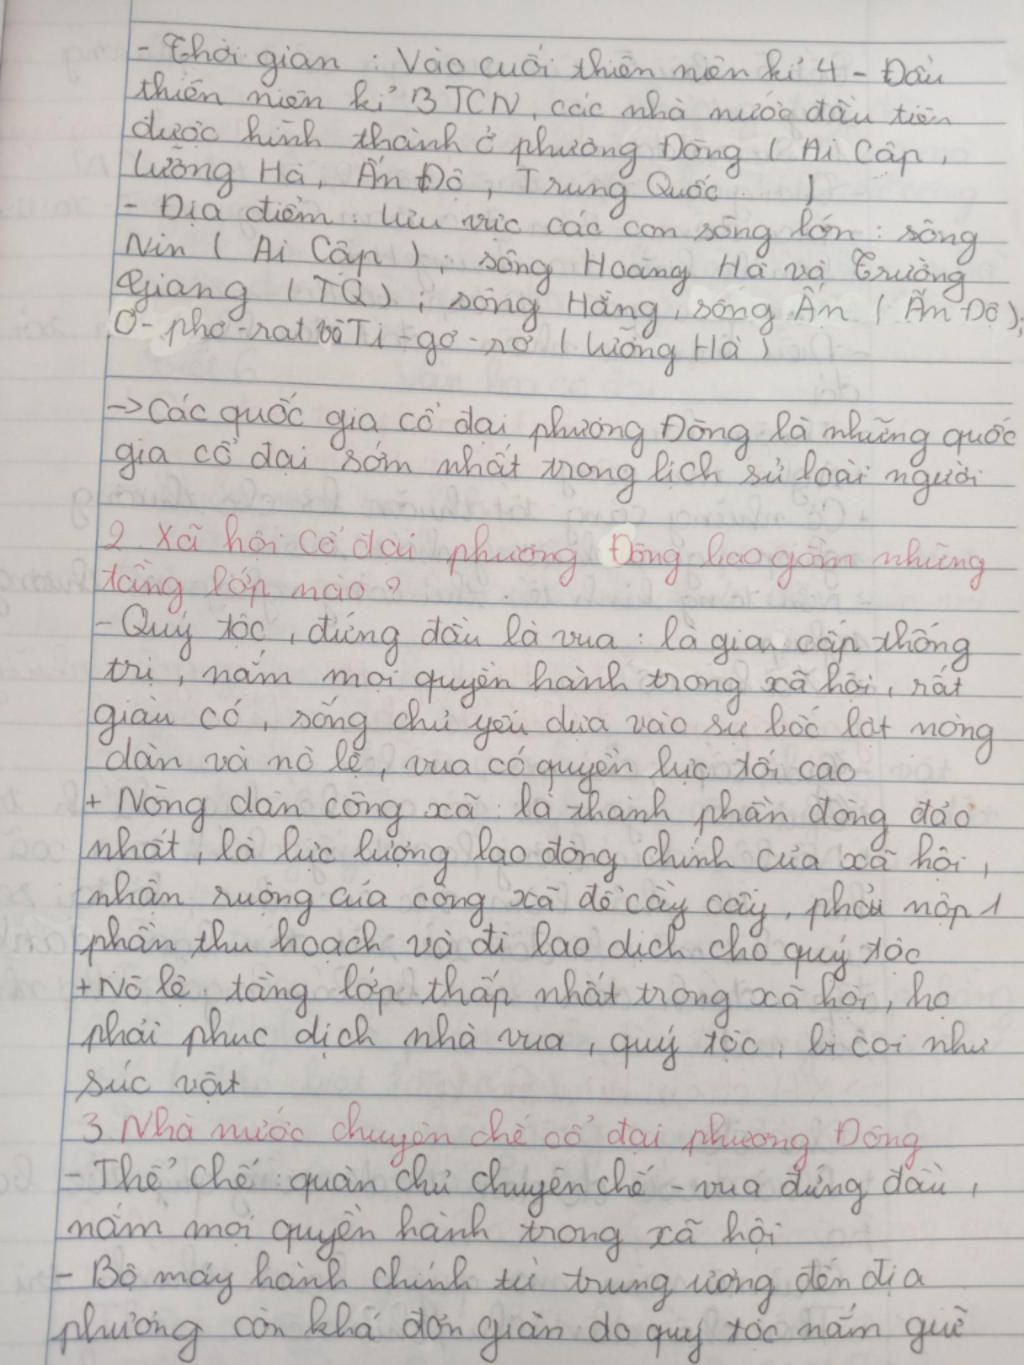 - Thời gian : Vào cuối thiên niên kỉ 4 - Đầu
thiên niên kỉ 3 TCN, các nhà nước đầu tiên
được hình thành ở phương Đông ( Ai Cập,
Lưỡng Hà, Ấn Độ, Trung Quốc )
- Địa điểm : lưu vực các con sông lớn : sông
Nin ( Ai Cập ) ; sông Hoàng Hà và Trường
Giang ( TQ ) ; sông Hằng, sông Ấn ( Ấn Độ );
Ơ-phơ-rat và Ti-gơ-rơ ( Lưỡng Hà )
-> Các quốc gia cổ đại phương Đông là những quốc
gia cổ đại sớm nhất trong lịch sử loài người
2 Xã hội cổ đại phương Đông bao gồm những
tầng lớp nào ?
- Quý tộc, đứng đầu là vua : là giai cấp thống
trị, nắm mọi quyền hành trong xã hội, rất
giàu có, sống chủ yếu dựa vào sự bóc lột nông
dân và nô lệ, vua có quyền lực tối cao
+ Nông dân công xã : là thành phần đông đảo
nhất, là lực lượng lao động chính của xã hội,
nhận ruộng của công xã để cày cấy, phải nộp 1
phần thu hoạch và đi lao dịch cho quý tộc
+ Nô lệ : tầng lớp thấp nhất trong xã hội, họ
phải phục dịch nhà vua, quý tộc, bị coi như
súc vật
3 Nhà nước chuyên chế cổ đại phương Đông
- Thể chế : quân chủ chuyên chế - vua đứng đầu,
nắm mọi quyền hành trong xã hội
- Bộ máy hành chính từ trung ương đến địa
phương còn khá đơn giản do quý tộc nắm